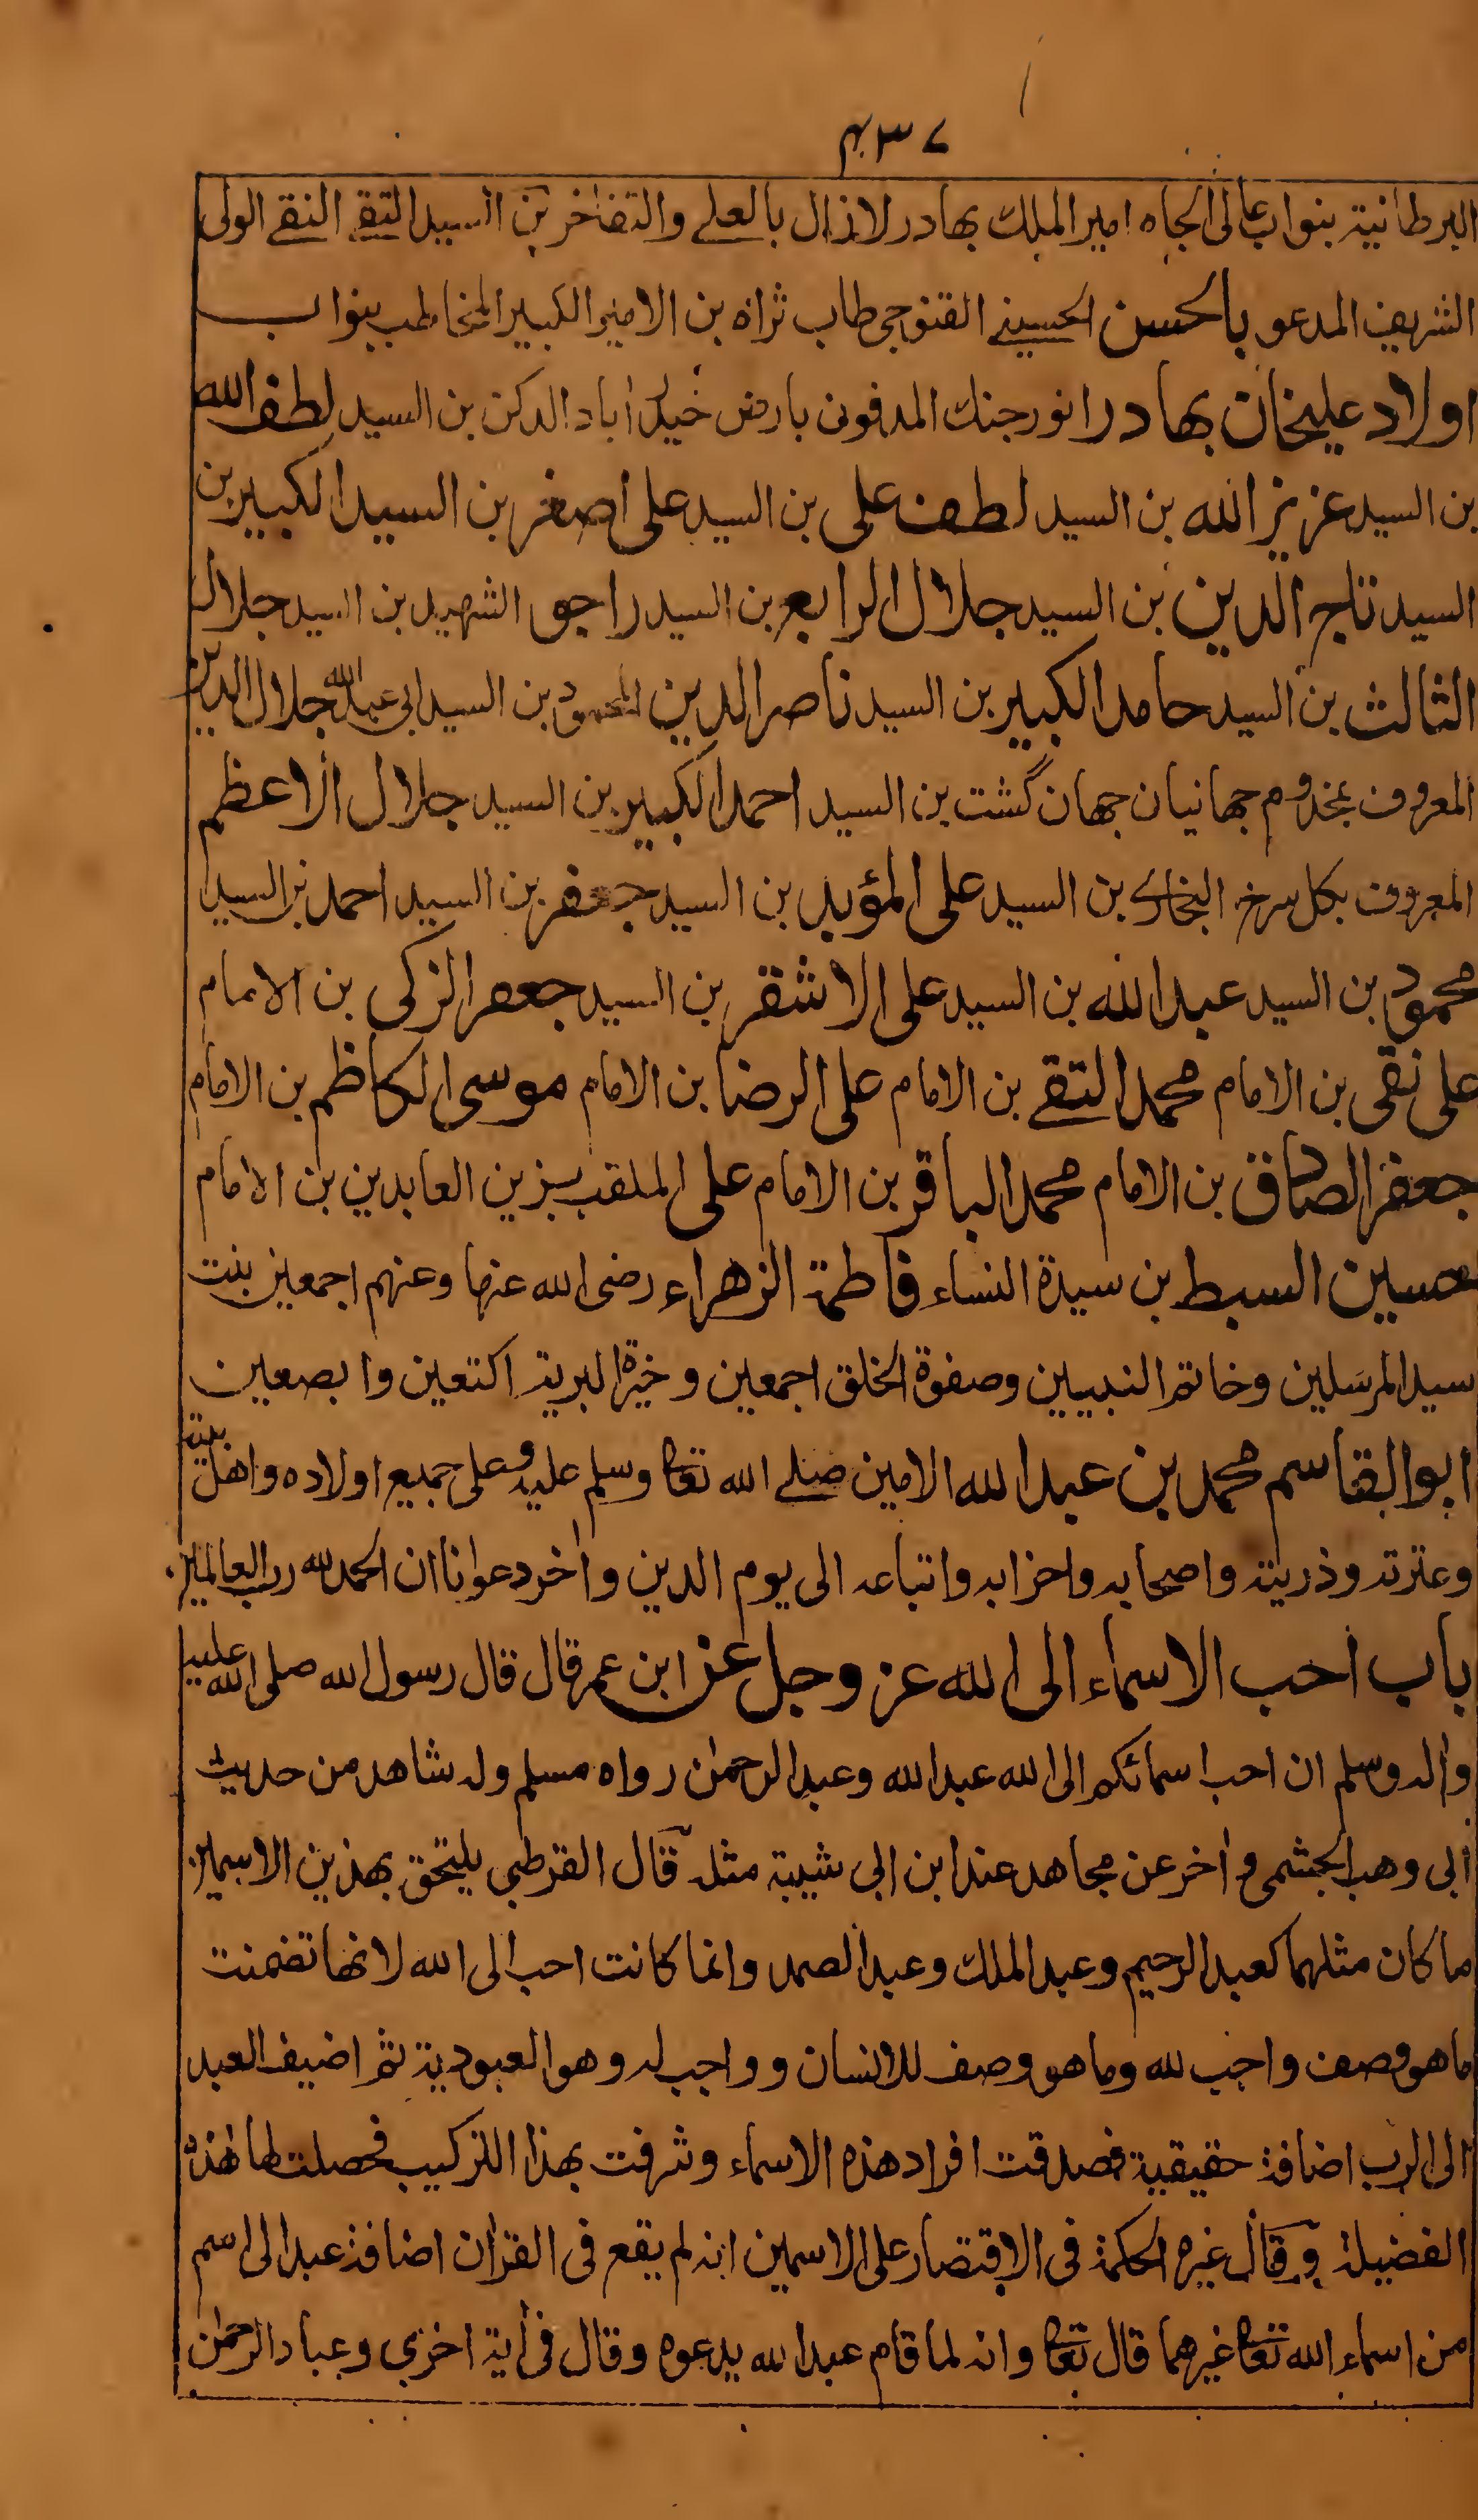 ۴۳۷
البرطانية بنواب عالى الجاه امير الملك بهادر لازال بالعلے والتفاخر بن السيد التقے النقے الولى
الشريف المدعو بالحسن الحسينے القنوجى طاب ثراه بن الامير الكبير المخاطب بنواب
اولاد عليخان بهادر انور جنك المدفون بارض حيدر اباد الدكن بن السيد لطف الله
بن السيد عزيز الله بن السيد لطف على بن السيد على اصغر بن السيد الكبير بن
السيد تاج الدين بن السيد جلال الرابع بن السيد راجو الشهيد بن السيد جلال
الثالث بن السيد حامد الكبير بن السيد ناصر الدين المحمود بن السيد ابى عبد الله جلال الدين
المعروف بمخدوم جهانيان جهان گشت بن السيد احمد الكبير بن السيد جلال الاعظم
المعروف بكل سرخ البخارے بن السيد على المؤيد بن السيد جعفر بن السيد احمد بن السيد
محمود بن السيد عبد الله بن السيد على الاشقر بن السيد جعفر الزكى بن الامام
على نقى بن الامام محمد التقے بن الامام على الرضا بن الامام موسى الكاظم بن الامام
جعفر الصادق بن الامام محمد الباقر بن الامام على الملقب بزين العابدين بن الامام
حسين السبط بن سيدة النساء فاطمة الزهراء رضى الله عنها وعنهم اجمعين بنت
سيد المرسلين وخاتم النبيين وصفوة الخلق اجمعين وخيرة البرية اكتعين وابصعين
ابو القاسم محمد بن عبد الله الامين صلے الله تعا وسلم عليه وعلى جميع اولاده واهل بيته
وعترته وذريته واصحابه واحزابه واتباعه الى يوم الدين واٰخر دعوانا ان الحمد لله رب العالمين
باب احب الاسماء الى الله عز وجل عن ابن عمر قال قال رسول الله صلى الله عليه
واٰله وسلم ان احب اسمائكم الى الله عبد الله وعبد الرحمٰن رواه مسلم وله شاهد من حديث
ابى وهب الجشمى واٰخر عن مجاهد عند ابن ابى شيبة مثله قال القرطبي يلتحق بهذين الاسمين
ما كان مثلهما كعبد الرحيم وعبد الملك وعبد الصمد وانما كانت احب الى الله لانها تضمنت
ما هو وصف واجب لله وما هو وصف للانسان وواجب له وهو العبودية ثم اضيف العبد
الى الرب اضافة حقيقية فصدقت افراد هذه الاسماء وشرفت بهذا التركيب فحصلت لها هٰذه
الفضيلة وقال غيره الحكمة فى الاقتصار على الاسمين انه لم يقع فى القراٰن اضافة عبد الى اسم
من اسماء الله تعا غيرهما قال تعا وانه لما قام عبد الله يدعوه وقال فى اٰية اخرى وعباد الرحمٰن